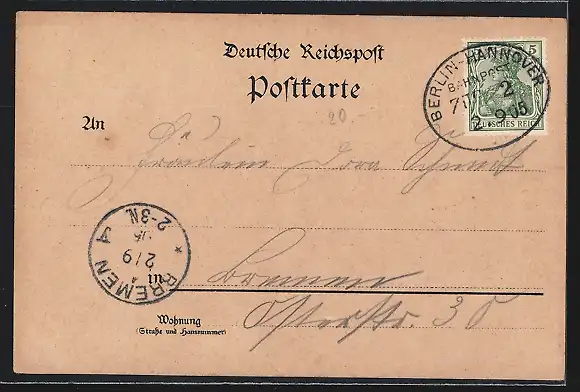 Deutsche Reichspost
Postkarte
5
DEUTSCHES REICH
BERLIN-HANNOVER
BAHNPOST
2
2 9 05
20.-
An
Fräulein Dora Schmidt
BREMEN
A
2/9
05
2-3N.
in Bremen
Osterstr. 30
Wohnung
(Straße und Hausnummer)